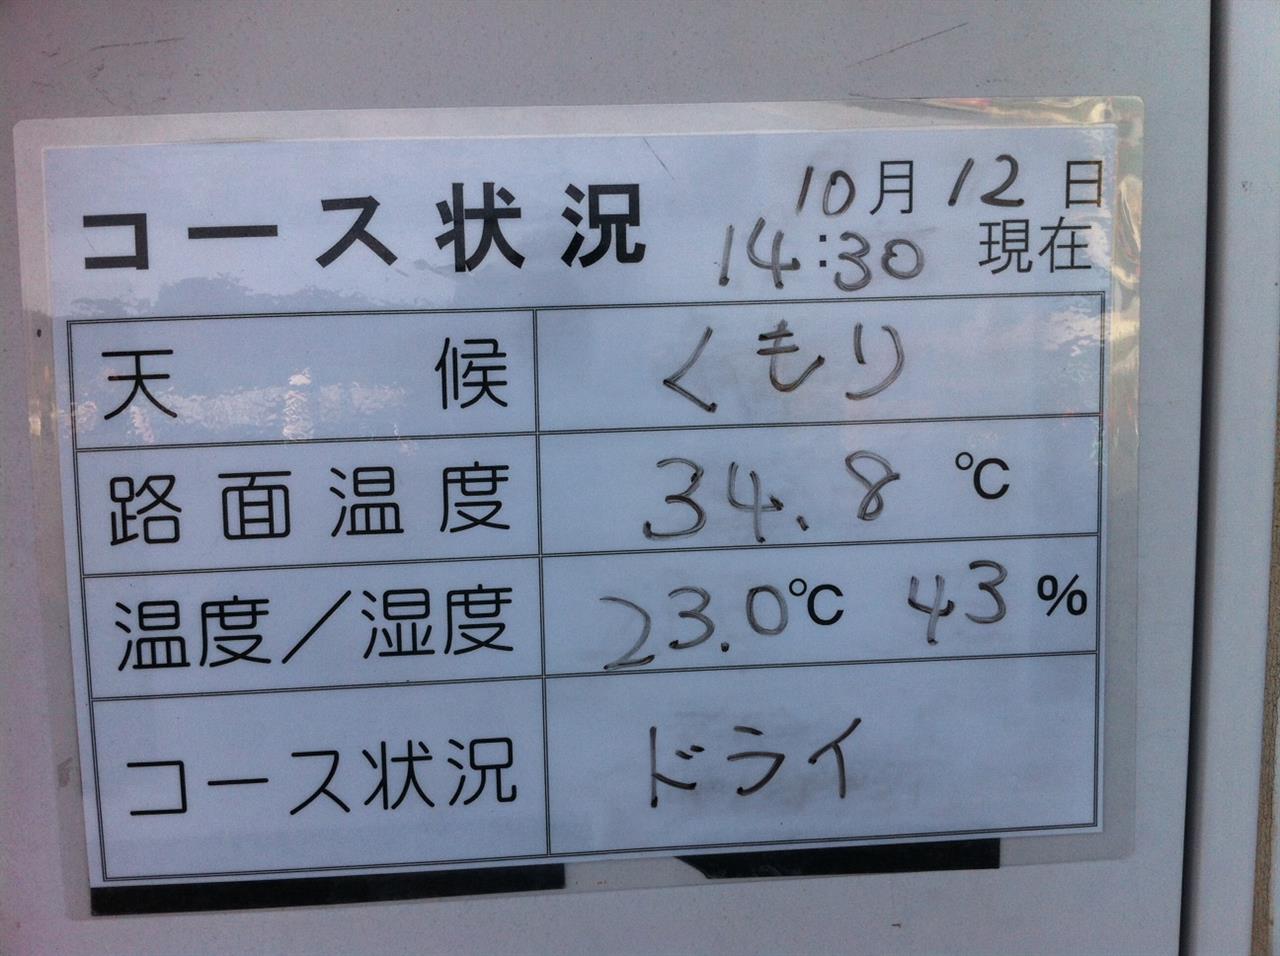 コース状況 10月12日
14:30 現在
天候 くもり
路面温度 34.8 ℃
温度／湿度 23.0℃ 43 %
コース状況 ドライ